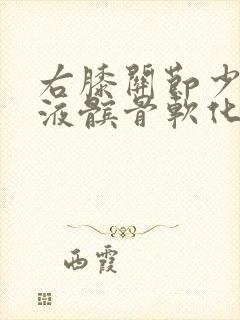 右膝關節少
液髌骨軟化
西霞